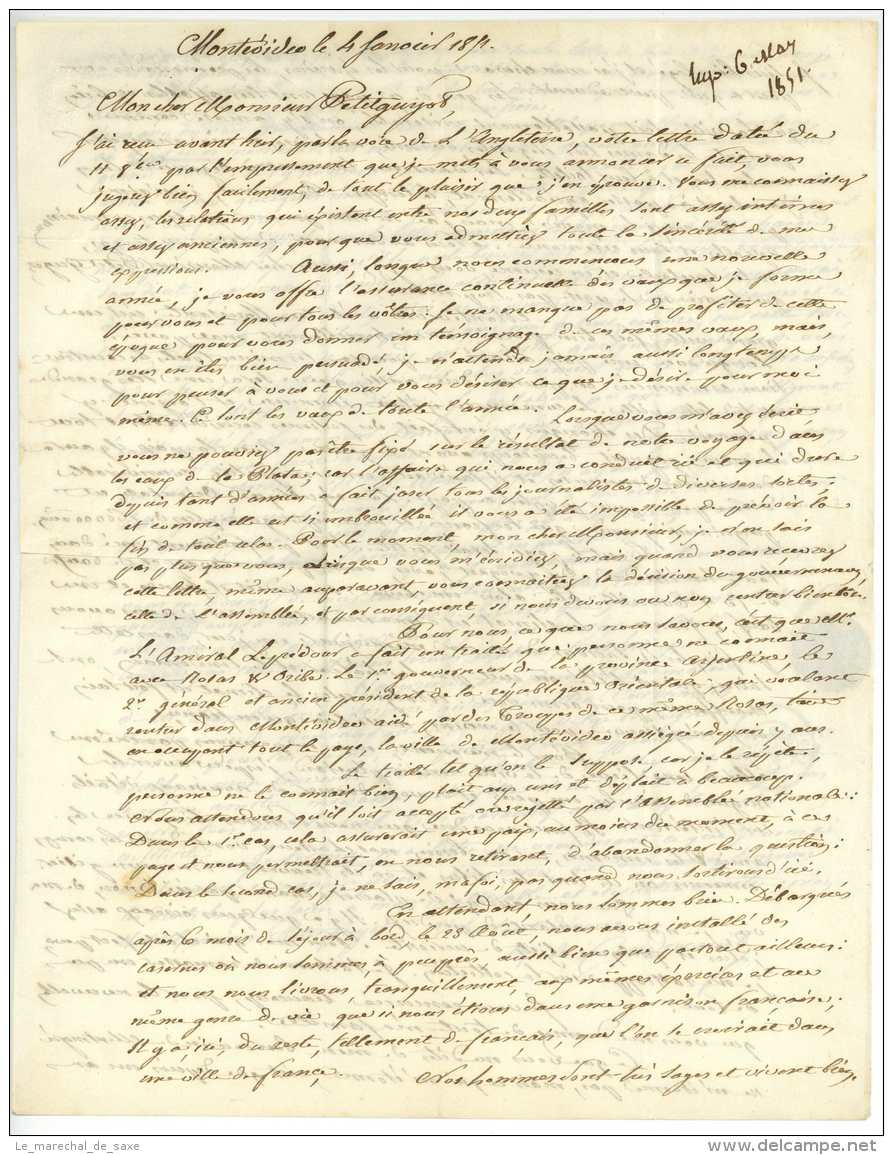 Montévideo le 4 Janvier 1851.
Rép: 6 May
1851.
Mon cher Monsieur Petitguyot,
J'ai reçu avant hier, par la voie de l'Angleterre, votre lettre datée du
11 8bre par l'empressement que je mets à vous annoncer ce fait, vous
jugerez bien facilement, de tout le plaisir que j'en éprouve. Vous me connaissez
assez, les relations qui existent entre nos deux familles sont assez intimes
et assez anciennes, pour que vous admettiez toute la sincérité de mes
expressions. Aussi, lorsque nous commençons une nouvelle
année, je vous offre l'assurance continuelle des vœux que je forme
pour vous et pour tous les vôtres. Je ne manque pas de profiter de cette
époque pour vous donner un témoignage de ces mêmes vœux, mais,
vous en êtes bien persuadé, je n'attends jamais aussi longtemps
pour penser à vous et pour vous désirer ce que je désire pour moi
même. Ce sont les vœux de toute l'année. Lorsque vous m'avez écrit
vous ne pouviez pas être fixé sur le résultat de notre voyage dans
les eaux de la Plata; car l'affaire qui nous a conduit ici et qui dure
depuis tant d'années a fait jaser tous les journalistes de diverses sortes:
et comme elle est si embrouillée il vous a été impossible de prévoir la
fin de tout cela. Pour le moment, mon cher Monsieur, je n'en sais
pas plus que vous, lorsque vous m'écriviez, mais quand vous recevrez
cette lettre, même auparavant, vous connaîtrez la décision du gouvernement,
celle de l'assemblée, et par conséquent, si nous devons ou non rentrer bientôt.
Pour nous, ce que nous savons, c'est que Mr.
l'Amiral Leprédour a fait un traité que personne ne connait
avec Rosas & Oribe. Le 1er gouverneur de la province argentine, le
2e général et ancien président de la république Orientale, qui voulant
rentrer dans Montévidéo aidé par des troupes de ce même Rosas, tient
en occupant tout le pays, la ville de Montévidéo assiégée depuis 7 ans.
Le traité tel qu'on le suppose, car je le répète,
personne ne le connait bien, plait aux uns et déplait à beaucoup.
Nous attendons qu'il soit accepté ou rejetté par l'Assemblée nationale:
Dans le 1er cas, cela assurerait une paix, au moins du moment, à ce
pays et nous permettrait, en nous retirant, d'abandonner la question:
Dans le second cas, je ne sais, ma foi, pas quand nous sortirons d'ici.
En attendant, nous sommes bien. Débarqués
après 6 mois de séjour à bord, le 28 Août, nous avons installé des
casernes où nous sommes à peu près aussi bien que partout ailleurs:
et nous nous livrons tranquillement, aux mêmes exercices et au
même genre de vie que si nous étions dans une garnison française:
Il y a, ici, du reste, tellement de français, que l'on se croirait dans
une ville de france. Nos hommes sont très sages et vivent bien,
Le_marechal_de_saxe
delcampe.net